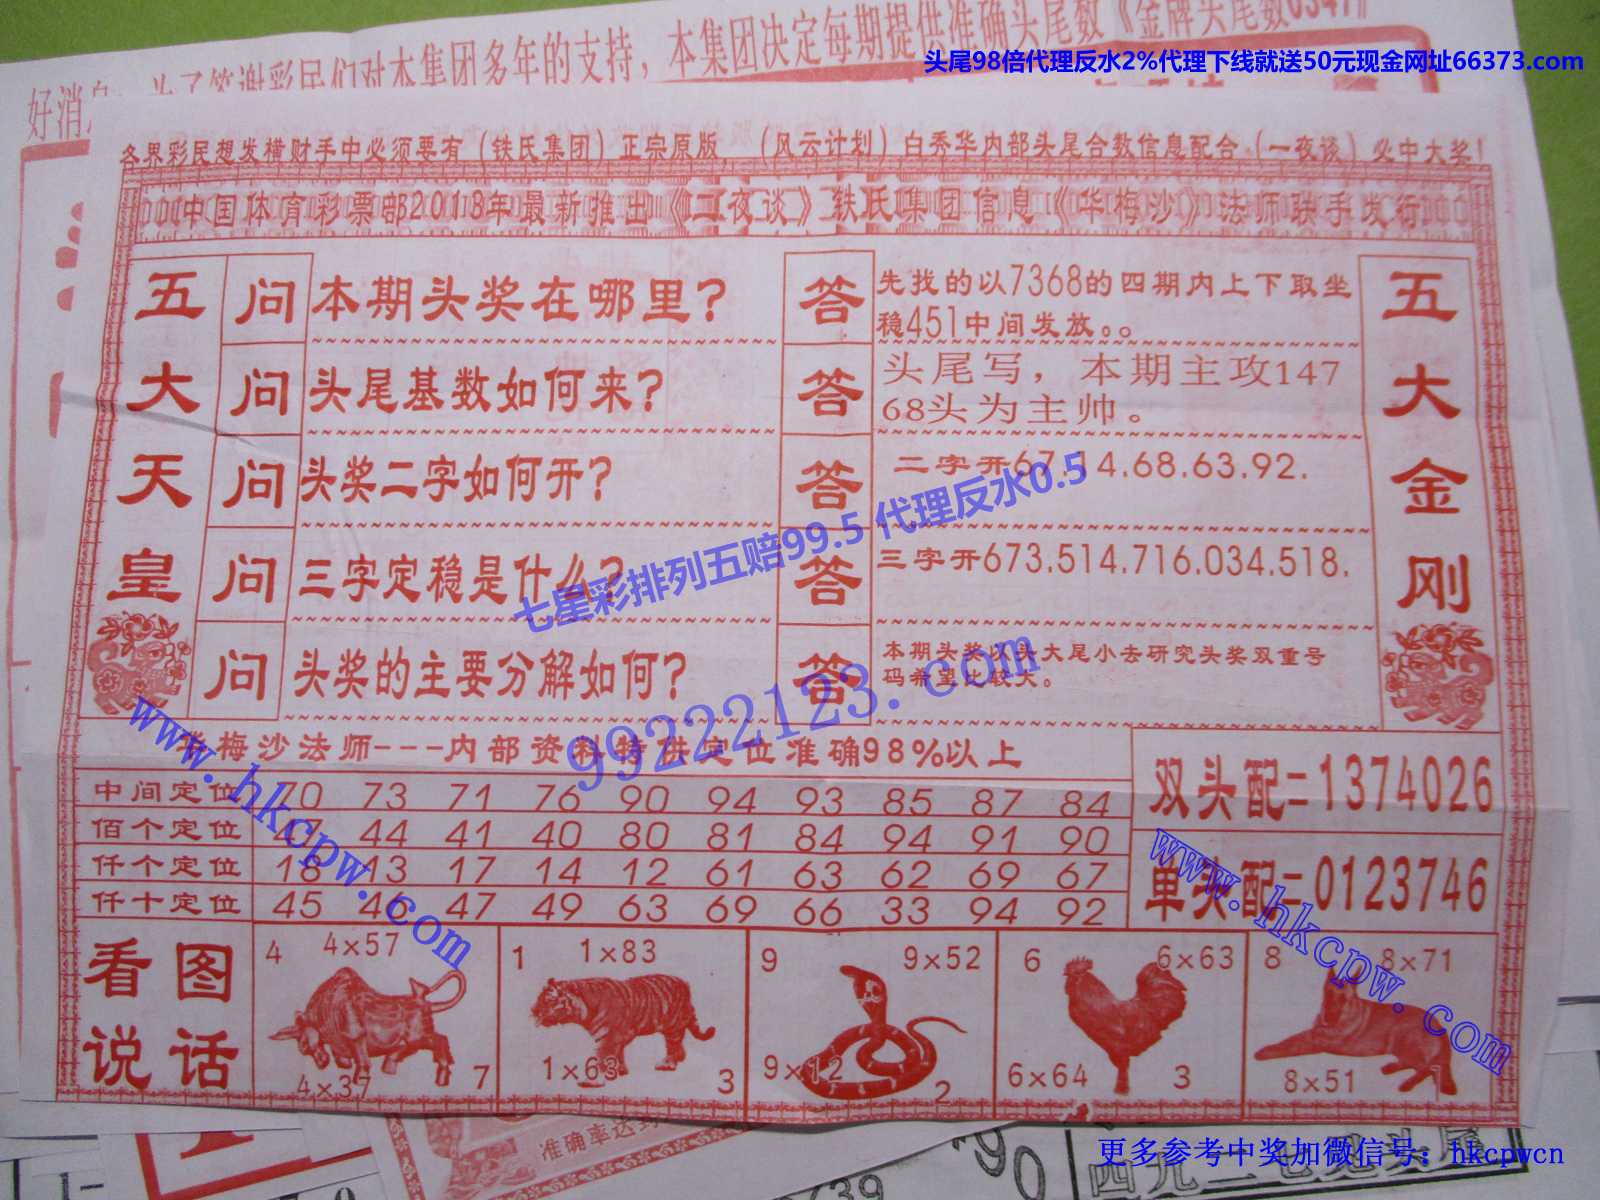 好消息：为了答谢彩民们对本集团多年的支持，本集团决定每期提供准确头尾数《金牌头尾数0347》
头尾98倍代理反水2%代理下线就送50元现金网址66373.com
各界彩民想发横财手中必须要有（铁氏集团）正宗原版，（风云计划）白秀华内部头尾合数信息配合（一夜谈）必中大奖！
中国体育彩票部2018年最新推出《二夜谈》铁氏集团信息《华梅沙》法师联手发行
五大天皇
问 本期头奖在哪里？
答 先找的以7368的四期内上下取坐
稳451中间发放。。
问 头尾基数如何来？
答 头尾写，本期主攻147
68头为主帅。
问 头奖二字如何开？
答 二字开67.14.68.63.92.
问 三字定稳是什么？
答 三字开673.514.716.034.518.
问 头奖的主要分解如何？
答 本期头奖以头大尾小去研究头奖双重号
码希望比较大。
五大金刚
七星彩排列五赔99.5 代理反水0.5
99222123.com
华梅沙法师---内部资料特供定位准确98%以上
中间定位 70 73 71 76 90 94 93 85 87 84
佰个定位 47 44 41 40 80 81 84 94 91 90
仟个定位 18 13 17 14 12 61 63 62 69 67
仟十定位 45 46 47 49 63 69 66 33 94 92
双头配=1374026
单头配=0123746
www.hkcpw.com
www.hkcpw.com
看图
说话
4 4×57
4×37 7
1 1×83
1×63 3
9 9×52
9×12 2
6 6×63
6×64 3
8 8×71
8×51 1
准确率达到
更多参考中奖加微信号：hkcpwcn